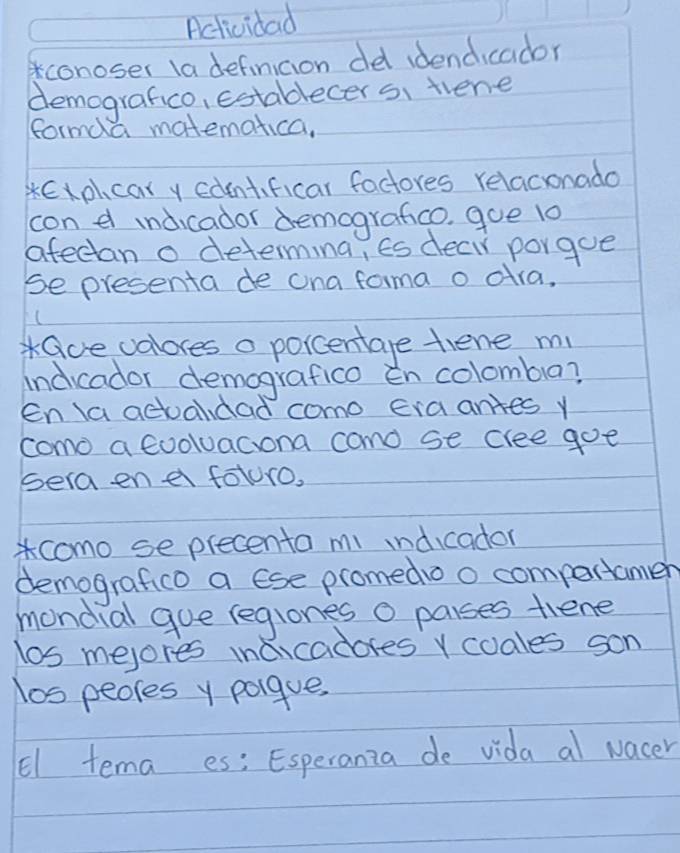 Actividad
*conoser la definicion del idendicador
demografico, establecer si tiene
formula matematica.
*Explicar y edentificar factores relacionado
con el indicador demografico. que lo
afectan o determina, es decir porque
se presenta de una forma o otra.
*Que valores o porcentaje tiene mi
indicador demografico en colombia?
En la actualidad como era antes y
como a evoluaciona como se cree que
sera en el foturo.
*como se precenta mi indicador
demografico a ese promedio o compartamen
mondial que regiones o paises tiene
los mejores indicadores y cuales son
los peores y porque.
El tema es: Esperanza de vida al Nacer